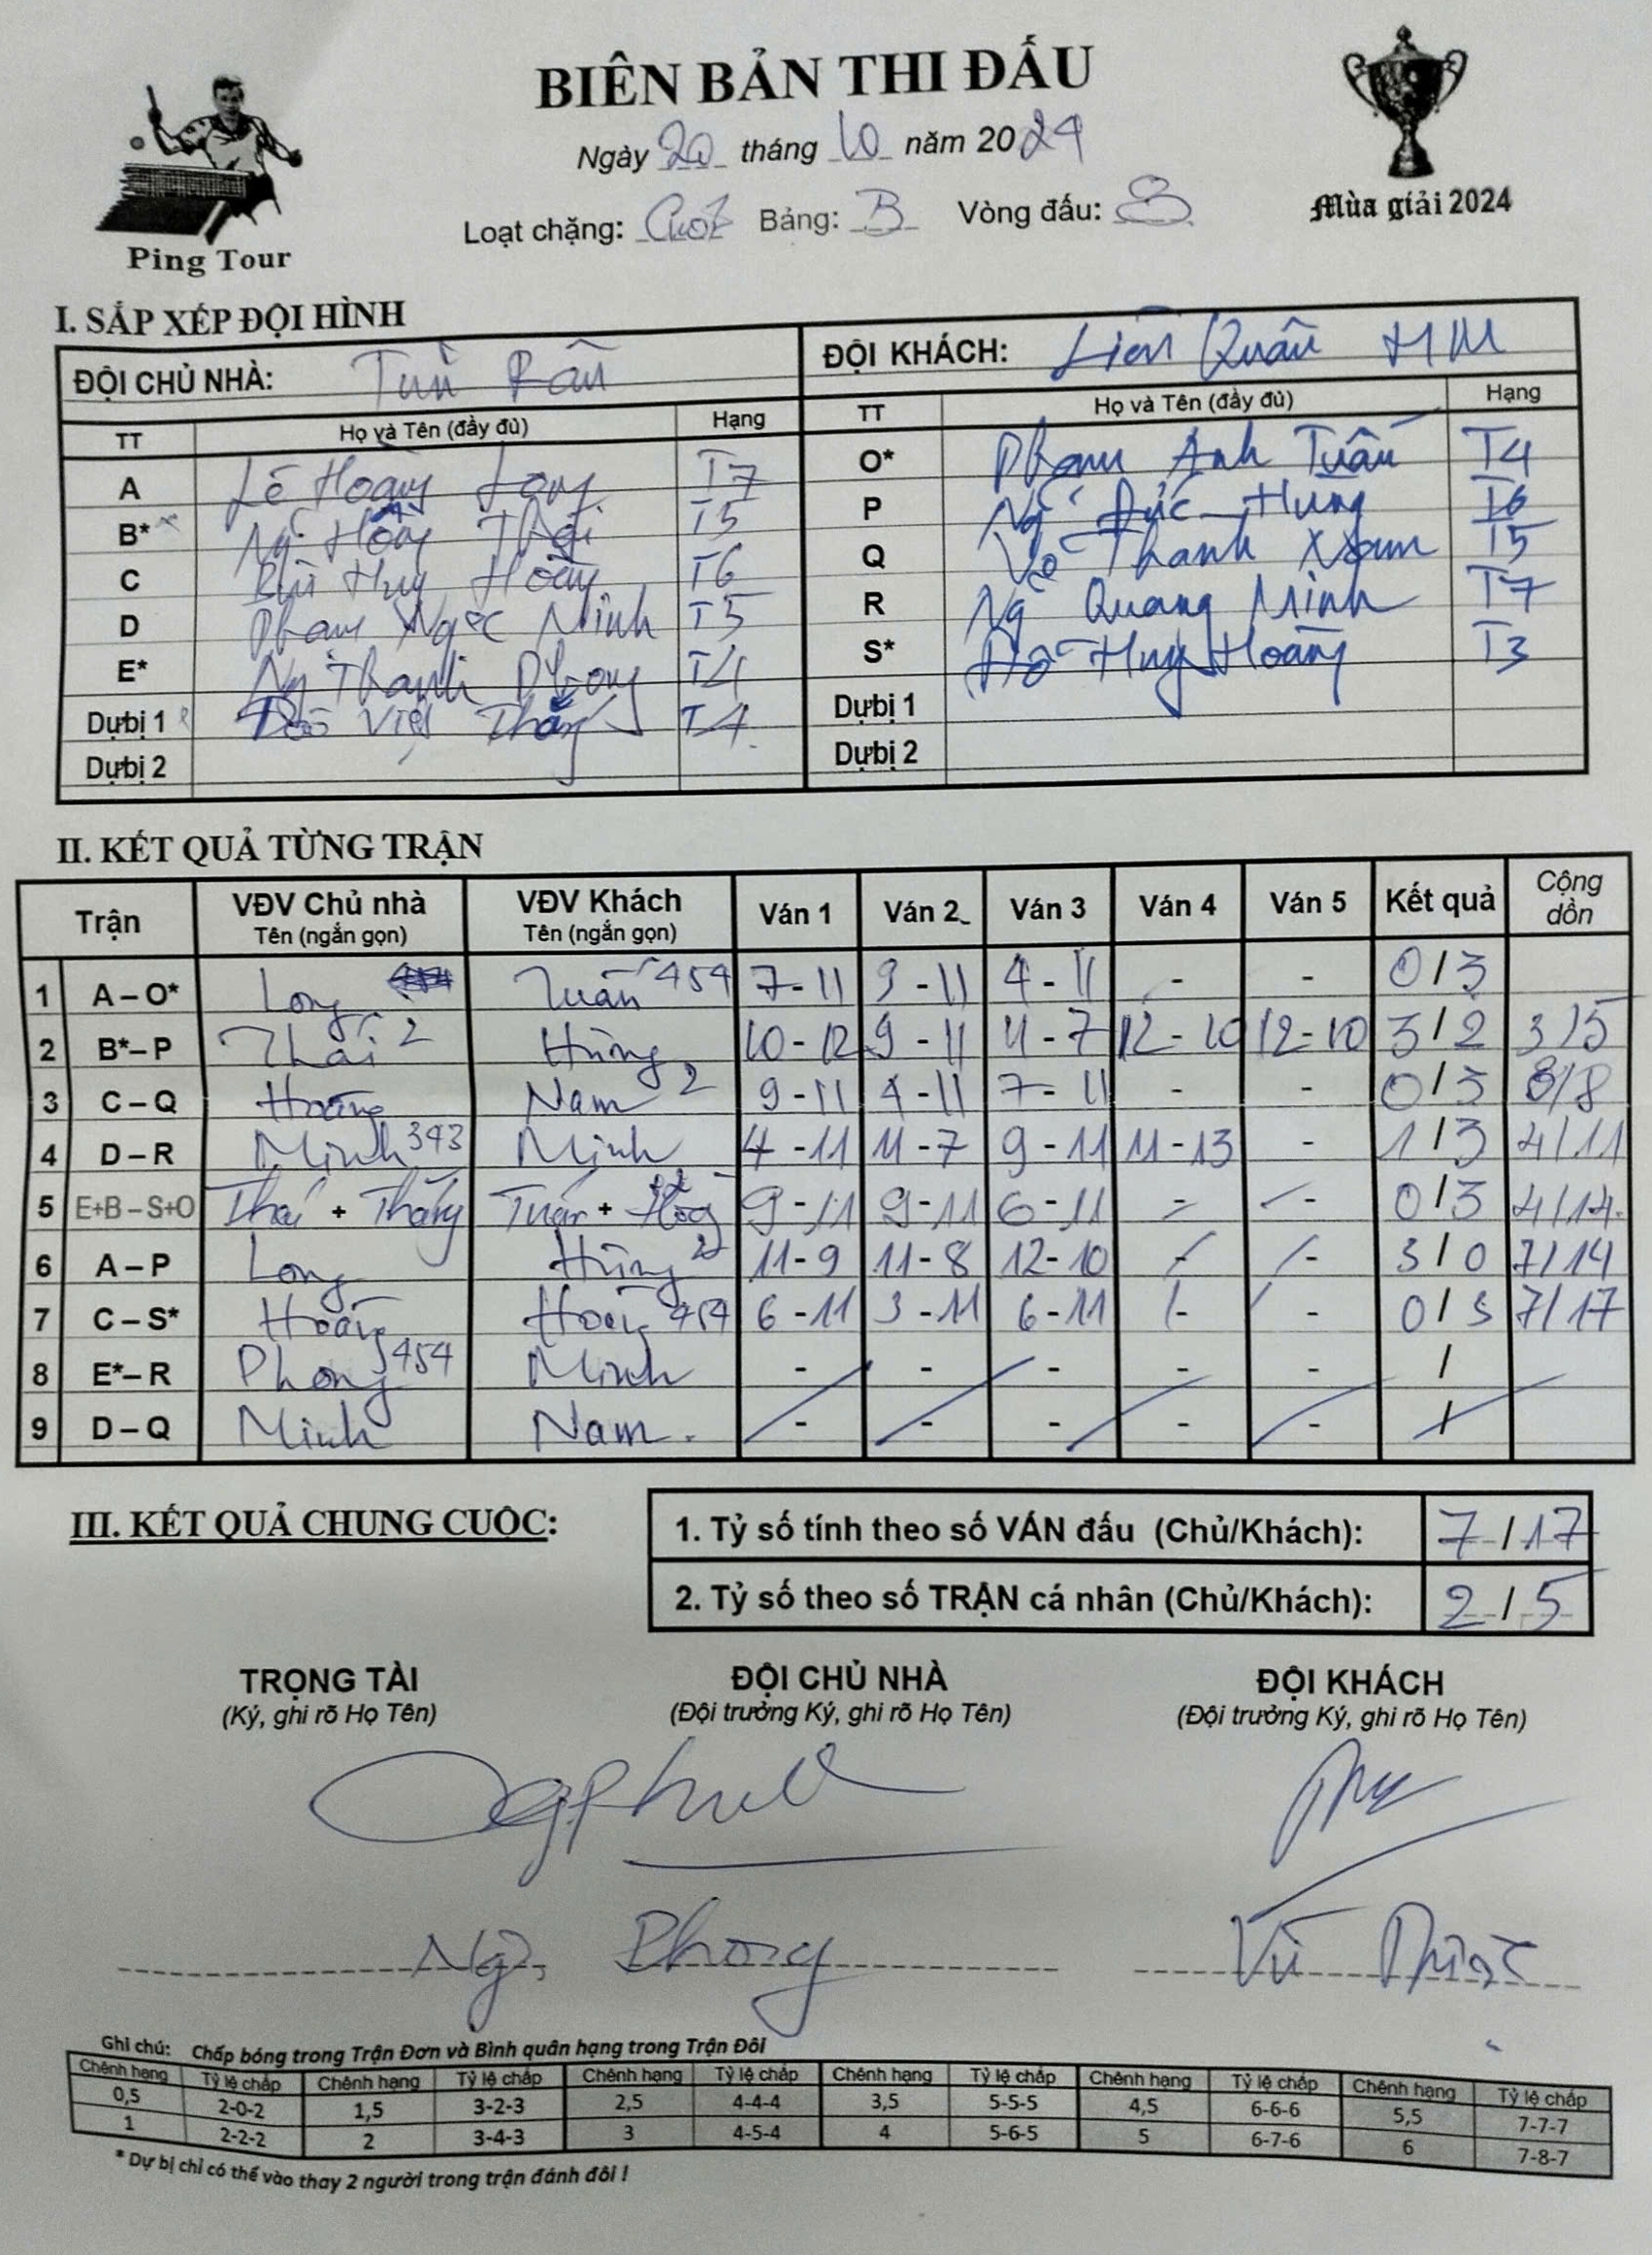 BIÊN BẢN THI ĐẤU
Ngày 20 tháng 10 năm 2024
Loạt chặng: Bảng: B Vòng đấu: 8
Ping Tour
Mùa giải 2024
I. SẮP XẾP ĐỘI HÌNH
ĐỘI CHỦ NHÀ: ĐỘI KHÁCH: Liên Quân HM
TT Họ và Tên (đầy đủ) Hạng TT Họ và Tên (đầy đủ) Hạng
A Lê Hoàng Long T7 O* Phạm Anh Tuấn T4
B* Ng Hồng Thái T5 P Ng Đức Hùng T6
C Bùi Huy Hoàng T6 Q Võ Thanh Nam T5
D Phạm Ngọc Minh T5 R Ng Quang Minh T7
E* Ng Thanh Phong T4 S* Đỗ Huy Hoàng T3
Dự bị 1 Đỗ Việt Thắng T4 Dự bị 1
Dự bị 2 Dự bị 2
II. KẾT QUẢ TỪNG TRẬN
Trận VĐV Chủ nhà VĐV Khách Ván 1 Ván 2 Ván 3 Ván 4 Ván 5 Kết quả Cộng dồn
Tên (ngắn gọn) Tên (ngắn gọn)
1 A – O* Long Tuấn 454 7 - 11 9 - 11 4 - 11 - - 0 / 3
2 B* – P Thái 2 Hùng 10 - 12 9 - 11 11 - 7 12 - 10 12 - 10 3 / 2 3 / 5
3 C – Q Hoàng Nam 2 9 - 11 4 - 11 7 - 11 - - 0 / 3 3/8
4 D – R Minh 343 Minh 4 - 11 11 - 7 9 - 11 11 - 13 - 1 / 3 4/11
5 E+B – S+O Thái + Thắng Tuấn + Hoàng 9 - 11 9 - 11 6 - 11 - - 0 / 3 4/14.
6 A – P Long Hùng 2 11 - 9 11 - 8 12 - 10 - - 3 / 0 7/14
7 C – S* Hoàng Hoàng 454 6 - 11 3 - 11 6 - 11 - - 0 / 3 7/17
8 E* – R Phong 454 Minh - - - - - /
9 D – Q Minh Nam. - - - - - /
III. KẾT QUẢ CHUNG CUỘC:
1. Tỷ số tính theo số VÁN đấu (Chủ/Khách): 7 / 17
2. Tỷ số theo số TRẬN cá nhân (Chủ/Khách): 2 / 5
TRỌNG TÀI ĐỘI CHỦ NHÀ ĐỘI KHÁCH
(Ký, ghi rõ Họ Tên) (Đội trưởng Ký, ghi rõ Họ Tên) (Đội trưởng Ký, ghi rõ Họ Tên)
Ng, Phong Vũ
Ghi chú: Chấp bóng trong Trận Đơn và Bình quân hạng trong Trận Đôi
Chênh hạng Tỷ lệ chấp Chênh hạng Tỷ lệ chấp Chênh hạng Tỷ lệ chấp Chênh hạng Tỷ lệ chấp Chênh hạng Tỷ lệ chấp Chênh hạng Tỷ lệ chấp
0,5 2-0-2 1,5 3-2-3 2,5 4-4-4 3,5 5-5-5 4,5 6-6-6 5,5 7-7-7
1 2-2-2 2 3-4-3 3 4-5-4 4 5-6-5 5 6-7-6 6 7-8-7
* Dự bị chỉ có thể vào thay 2 người trong trận đánh đôi !